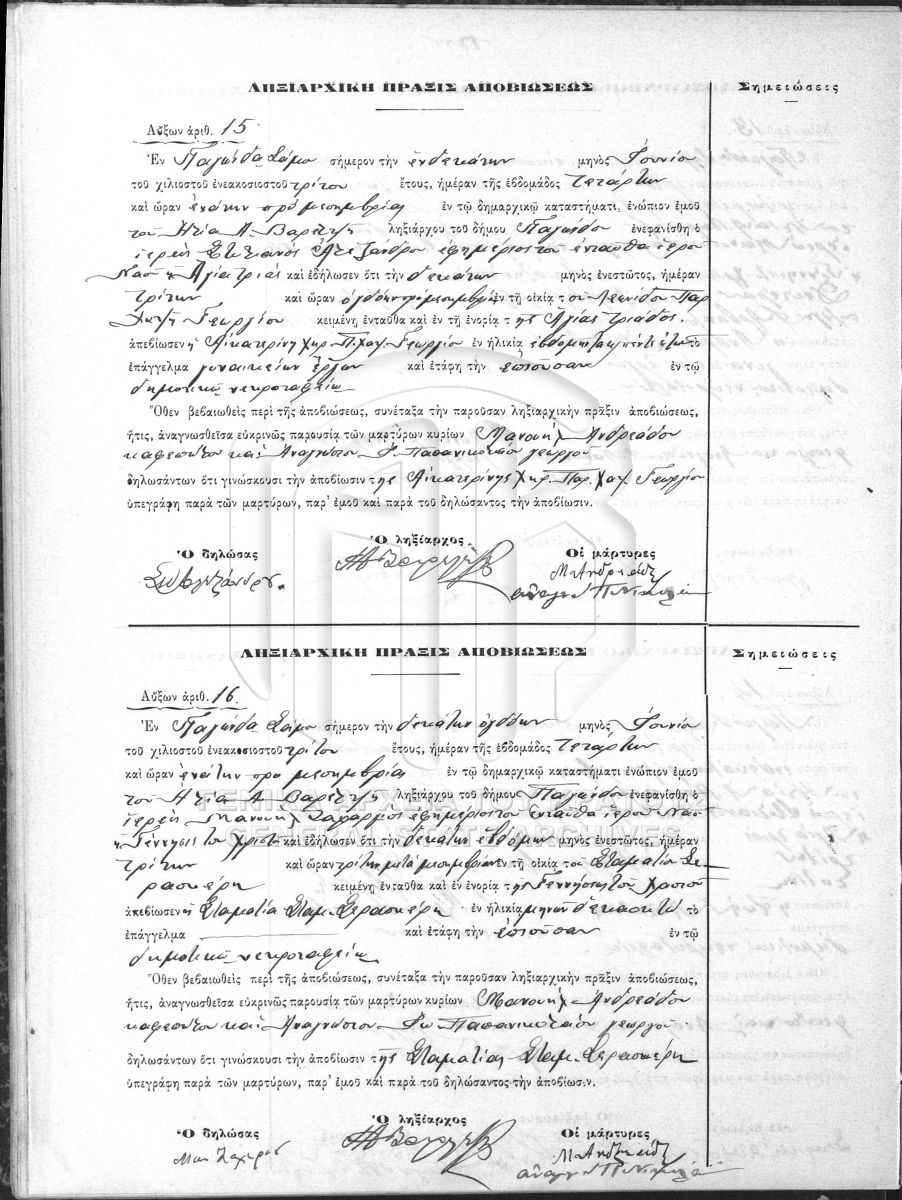 ΛΗΞΙΑΡΧΙΚΗ ΠΡΑΞΙΣ ΑΠΟΒΙΩΣΕΩΣ
Σημειώσεις
Αὔξων ἀριθ. 15
Ἐν Παγώνδα Σάμο σήμερον τὴν ἑνδεκάτην μηνὸς Ἰουνίο
τοῦ χιλιοστοῦ ἐνεακοσιοστοῦ τρίτου ἔτους, ἡμέραν τῆς ἑβδομάδος Τετάρτην
καὶ ὥραν ἐνάτην πρὸ μεσημβρίας ἐν τῷ δημαρχικῷ καταστήματι, ἐνώπιον ἐμοῦ
του Ηλία Α. Βαρέτζη ληξιάρχου τοῦ δήμου Παγώνδο ἐνεφανίσθη ὁ
ἱερεὺς Στυλιανὸς Ἀλεξάνδρο ἐφημέριος του ἐνταῦθα ἱερο
Ναο Ἁγία τριάς καὶ ἐδήλωσεν ὅτι τὴν δεκάτην μηνὸς ἐνεστῶτος, ἡμέραν
τρίτην καὶ ὥραν ὀγδόην προ μεσημβρίαν ἐν τῇ οἰκίᾳ του Λεωνίδου Παρ
Χατζῆ Γεωργίου κειμένῃ ἐνταῦθα καὶ ἐν τῇ ἐνορίᾳ της Ἁγίας τριάδος.
ἀπεβίωσεν ἡ Αἰκατερίνη χηρ. Π. Χατ. Γεωργίο ἐν ἡλικίᾳ ἑβδομήκοντα πέντε ἐτῶν τὸ
ἐπάγγελμα γυναικείων ἔργων καὶ ἐτάφη τὴν ἐπιοῦσαν ἐν τῷ
δημοτικῷ νεκροταφείῳ
Ὅθεν βεβαιωθεὶς περὶ τῆς ἀποβιώσεως, συνέταξα τὴν παροῦσαν ληξιαρχικὴν πρᾶξιν ἀποβιώσεως,
ἥτις, ἀναγνωσθεῖσα εὐκρινῶς παρουσίᾳ τῶν μαρτύρων κυρίων Μανουὴλ Ἀνδρεάδου
καφεπώλου καὶ Ἀναγνώστου Παπανικολάου γεωργοῦ
δηλωσάντων ὅτι γινώσκουσι τὴν ἀποβίωσιν της Αἰκατερίνης χηρ. Παρ. Χατ. Γεωργίου
ὑπεγράφη παρὰ τῶν μαρτύρων, παρ' ἐμοῦ καὶ παρὰ τοῦ δηλώσαντος τὴν ἀποβίωσιν.
Ὁ δηλώσας
Ὁ ληξίαρχος
Οἱ μάρτυρες
Μ. Ανδρεάδης
ΛΗΞΙΑΡΧΙΚΗ ΠΡΑΞΙΣ ΑΠΟΒΙΩΣΕΩΣ
Σημειώσεις
Αὔξων ἀριθ. 16
Ἐν Παγώνδα Σάμο σήμερον τὴν δεκάτην ὀγδόην μηνὸς Ἰουνίο
τοῦ χιλιοστοῦ ἐνεακοσιοστοῦ τρίτου ἔτους, ἡμέραν τῆς ἑβδομάδος Τετάρτην
καὶ ὥραν ἐνάτην προ μεσημβρίας ἐν τῷ δημαρχικῷ καταστήματι ἐνώπιον ἐμοῦ
του Ηλία Α. Βαρέτζη ληξιάρχου τοῦ δήμου Παγώνδο ἐνεφανίσθη ὁ
ἱερεὺς Μανουὴλ ἐφημέριος του ἐνταῦθα ἱερο Ναο
ΓΕΝΙΚΑ ΑΡΧΕΙΑ ΤΟΥ ΚΡΑΤΟΥΣ
GENERAL STATE ARCHIVES
ἡ Γέννησις του Χριστο καὶ ἐδήλωσεν ὅτι τὴν δεκάτην ἑβδόμην μηνὸς ἐνεστῶτος, ἡμέραν
τρίτην καὶ ὥραν τρίτην μετὰ μεσημβρίαν ἐν τῇ οἰκίᾳ του Σταματίου Σε-
ρασκέρη κειμένῃ ἐνταῦθα καὶ ἐν ἐνορίᾳ της Γεννήσεως του Χριστοῦ
ἀπεβίωσεν ἡ Σταματία Σταμ. Σερασκέρη ἐν ἡλικίᾳ μηνῶν δεκαοκτὼ τὸ
ἐπάγγελμα καὶ ἐτάφη τὴν ἐπιοῦσαν ἐν τῷ
δημοτικῷ νεκροταφείῳ
Ὅθεν βεβαιωθεὶς περὶ τῆς ἀποβιώσεως, συνέταξα τὴν παροῦσαν ληξιαρχικὴν πρᾶξιν ἀποβιώσεως,
ἥτις, ἀναγνωσθεῖσα εὐκρινῶς παρουσίᾳ τῶν μαρτύρων κυρίων Μανουὴλ Ἀνδρεάδου
καφεπώλου καὶ Ἀναγνώστου Παπανικολάου γεωργοῦ
δηλωσάντων ὅτι γινώσκουσι τὴν ἀποβίωσιν της Σταματίας Σταμ. Σερασκέρη
ὑπεγράφη παρὰ τῶν μαρτύρων, παρ' ἐμοῦ καὶ παρὰ τοῦ δηλώσαντος τὴν ἀποβίωσιν.
Ὁ δηλώσας
Ὁ ληξίαρχος
Οἱ μάρτυρες
Μ. Ανδρεάδης